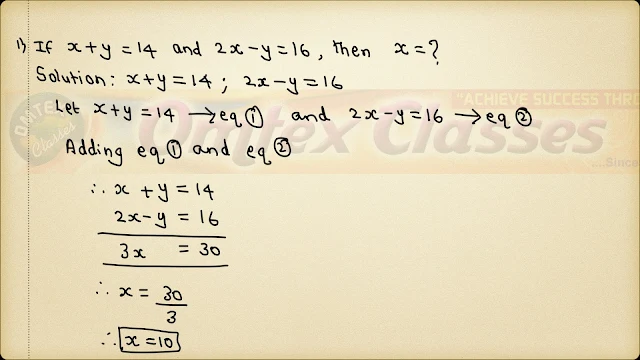 1) If x+y=14 and 2x-y=16, then x=?
Solution: x+y=14 ; 2x-y=16
"ACHIEVE SUCCESS THRO
Let x+y=14 → eq ① and 2x-y=16 → eq ②
OMTEX Classes
Omtex Classes
Adding eq ① and eq ②
...Since
∴ x + y = 14
2x-y = 16
3x = 30
∴ x = 30/3
∴ x=10